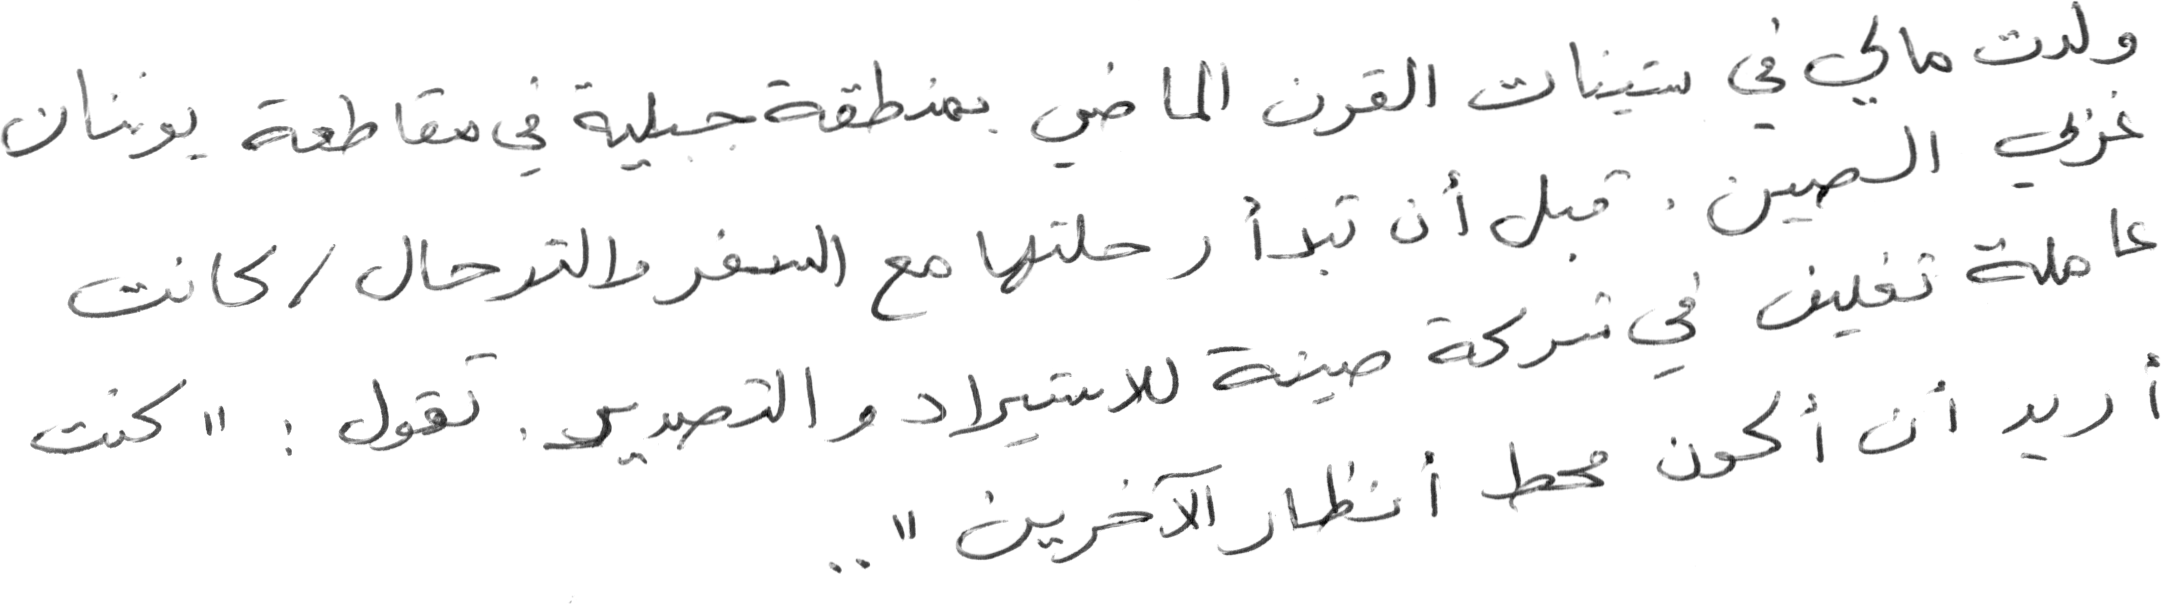 ولدت مالي في ستينات القرن الماضي بمنطقة جبلية في مقاطعة يوننان
غربي الصين. قبل أن تبدأ رحلتها مع السفر والترحال / كانت
عاملة تغليف في شركة صينة للاستيراد والتصدير. تقول : "كنت
أريد أن أكون محط أنظار الآخرين"..